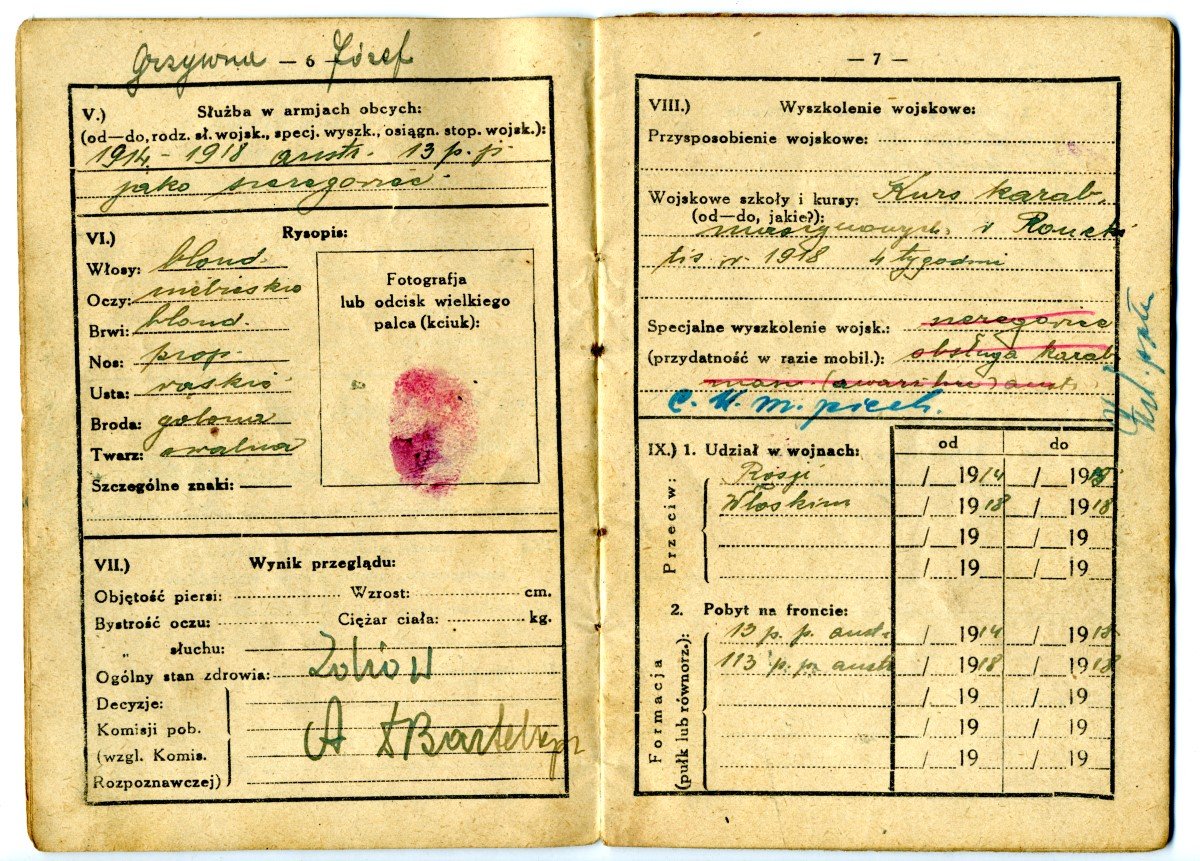 Grzywna — 6 — Józef
V.) Służba w armjach obcych:
(od—do, rodz. sł. wojsk., specj. wyszk., osiągn. stop. wojsk.):
1914 - 1918 austr. 13 p.p.
jako szeregowiec
VI.) Rysopis:
Włosy: blond
Oczy: niebieskie
Brwi: blond.
Nos: prop.
Usta: wąskie
Broda: golona
Twarz: owalna
Szczególne znaki: —
Fotografja
lub odcisk wielkiego
palca (kciuk):
VII.) Wynik przeglądu:
Objętość piersi: Wzrost: cm.
Bystrość oczu: Ciężar ciała: kg.
„ słuchu:
Ogólny stan zdrowia: Zdrów
Decyzje:
Komisji pob.
(wzgl. Komis.
Rozpoznawczej)
A
— 7 —
VIII.) Wyszkolenie wojskowe:
Przysposobienie wojskowe:
Wojskowe szkoły i kursy: Kurs karab.
(od—do, jakie?):
maszynowych
1918 4 tygodni
Specjalne wyszkolenie wojsk.: szeregowiec
(przydatność w razie mobil.): obsługa karab
masz
C.K.M. piech.
IX.) 1. Udział w wojnach: od do
Przeciw:
Rosji /__19 14 /__19
Włoskim /__19 18 /__19 18
/__19 /__19
/__19 /__19
2. Pobyt na froncie:
Formacja
(pułk lub równorz.):
13 p. p. austr /__19 14 /__19 18
113 p. p. austr /__19 18 /__19 18
/__19 /__19
/__19 /__19
/__19 /__19